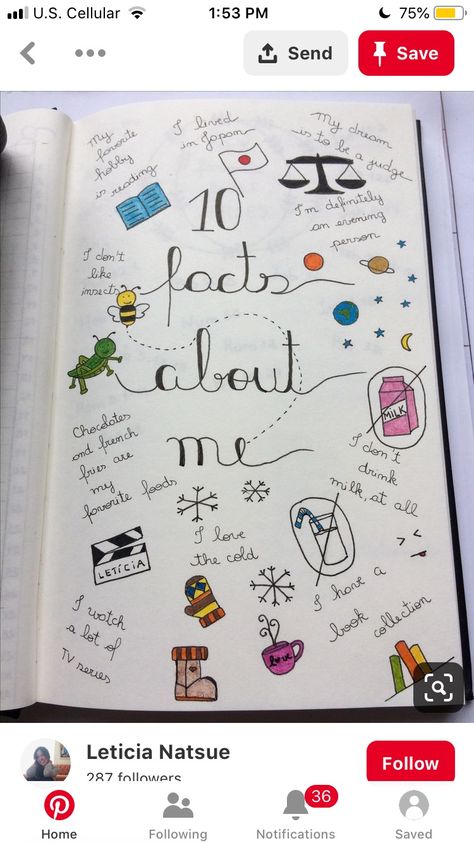 U.S. Cellular
1:53 PM
75%
Send
Save
My
favorite
hobby
is reading
I lived
in Japan
My dream
is to be a judge
10
I'm definitely
an evening
person
I don't
like
insects
facts
about
me
MILK
Chocolates
and french
fries are
my
favorite foods
I don't
drink
milk, at all
LETÍCIA
I love
the cold
I watch
a lot of
TV series
love
I have a
book
collection
Leticia Natsue
287 followers
Follow
36
Home
Following
Notifications
Saved